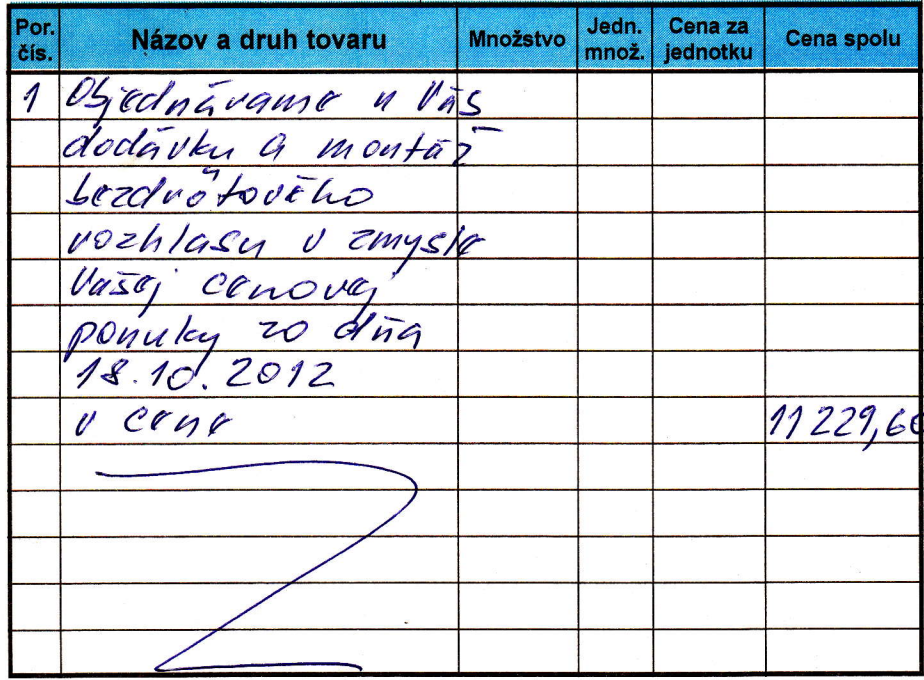 Por. čís. Názov a druh tovaru Množstvo Jedn. množ. Cena za jednotku Cena spolu
1 Objednávame u Vás
dodávku a montáž
bezdrôtového
rozhlasu v zmysle
Vašej cenovej
ponuky zo dňa
18.10.2012
v cene 11 229,60